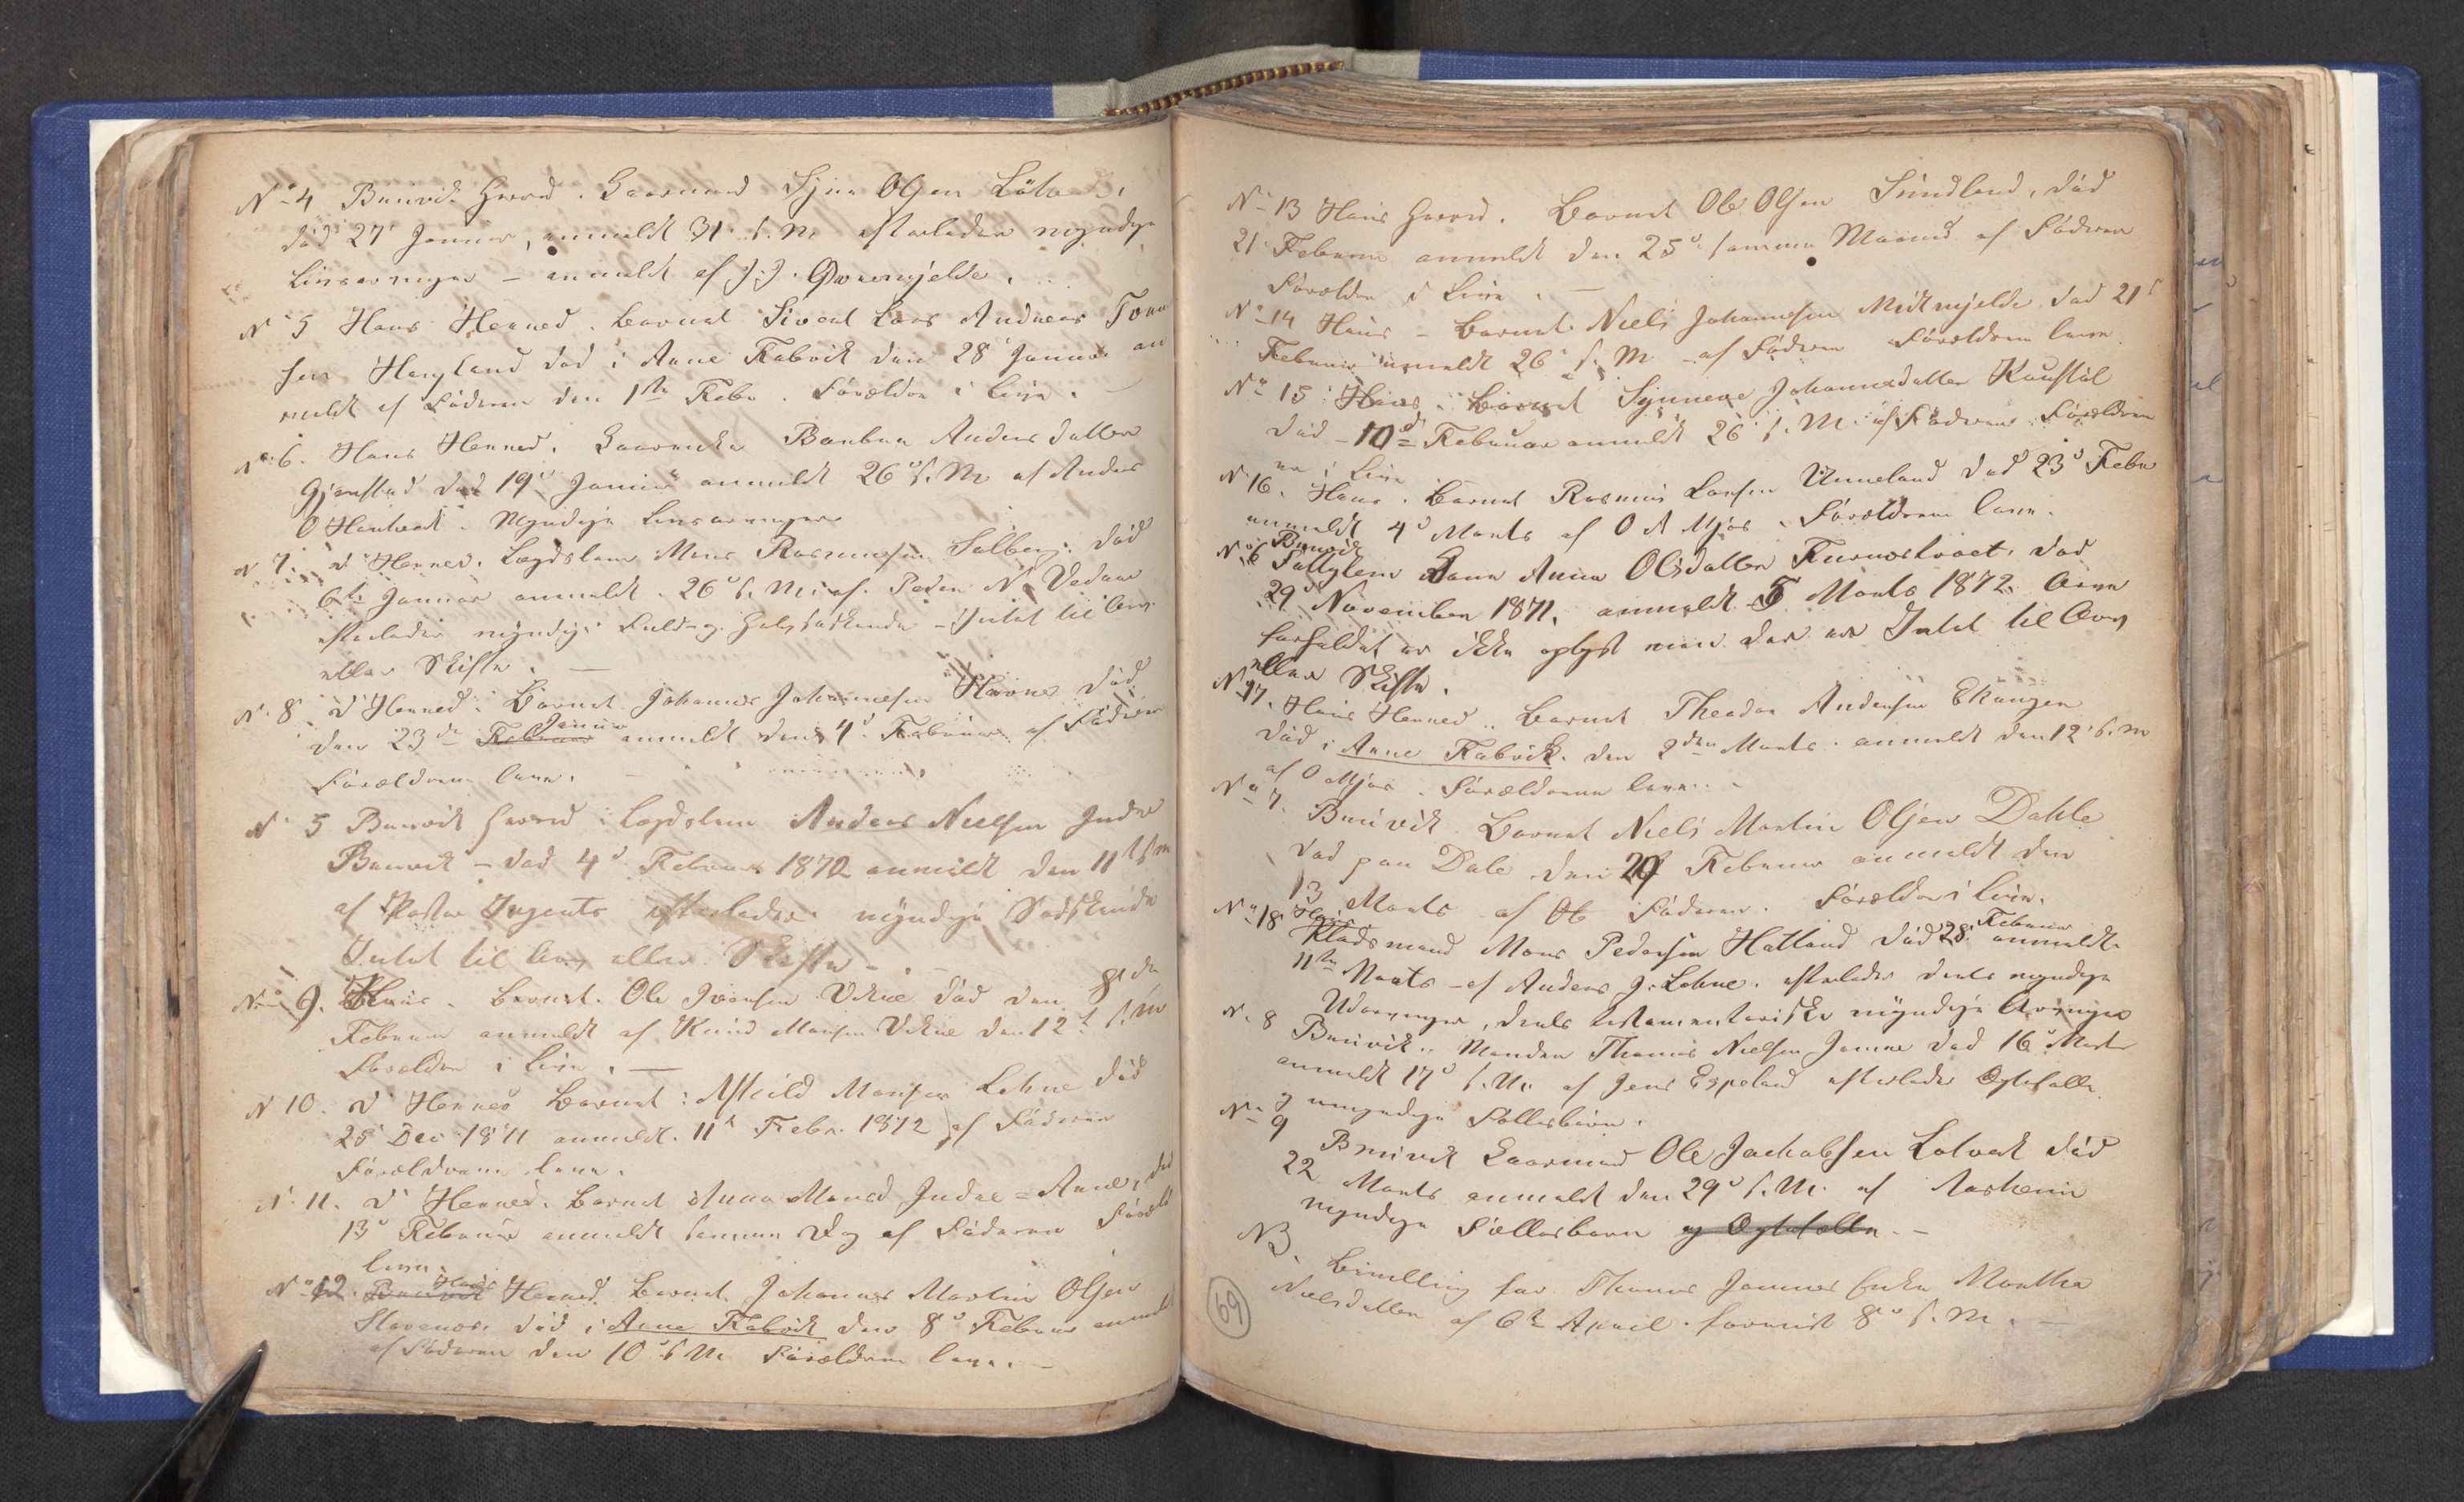 No 4 Bruvik Sogn. Gaarmand Sjur Olsen
død 27 Januar, anmeldt 31 s. M. efterlader myndige
Livsarvinger – anmeldt af J. J.
No 5 Hans Herred. Barnet Sivert Lars Andreas
sen Haugland død i Arne Fabrik den 28 Januar an
meldt af Faderen den 1ste Febr. Forældre i Live.
No 6. Hans Herred. Anders datter
død 19 Januar anmeldt 26 s. M. af Anders
O Myndige Livsarvinger
No 7. d Herred. Lægdslem Mons Rasmussen Solberg. død
6te Januar anmeldt. 26 s. M. af. Peder N. Vedaa
efterlader myndige Hel- og Halvsødskende – Intet til Arv
eller Skifte. –
No 8 d Herred. Barnet Johannes Johannesen død
den 23de Februar Januar anmeldt den 4 Februar af Faderen
Forældrene leve.
No 5 Bruvik Sogn Lægdslem Anders Nielsen Indre
Bruvik – død 4 Februar 1872 anmeldt den 11 s M
af efterlader myndige Sødskende
Intet til Arv eller Skifte –
No 9. Hans. Barnet. Ole Iversen død den 8de
Februar anmeldt af Knud Monsen den 12 s. M
Forældre i Live. –
No 10. d Herred Barnet: Monsen Lohne død
25 Dec 1871 anmeldt. 11 Febr. 1872 af Faderen
Forældrene leve.
No 11. d Herred. Barnet Anna Monsd Indre = Arne, død
13 Februar anmeldt samme Dag af Faderen Foræld
leve.
No 12. Bruvik Hans Herred Barnet Johannes Martin Olsen
død i Arne Fabrik den 8 Februar anmeldt
af Faderen den 10 s M. Forældrene leve. –
No 13 Hans Barnet Ole Olsen Sundland, død
21 Februar anmeldt den 25 samme Maaned af Faderen
Forældre i Live. –
No 14 Hans – Barnet Niels Johannesen Midtmjelde død 21
Februar anmeldt 26 s. M – af Faderen Forældrene leve.
No 15 Hans. Barnet Synneve Johannesdatter
død – 10de Februar anmeldt 26 s. M. af Faderen Forældre
ne i Live
No 16. Hans. Barnet Rasmus Larsen Unneland død 23 Febr
anmeldt 4 Marts af O A Mjøs. Forældrene leve.
No 6 Bruvik
Fattiglem Anna Olsdatter død
29 November 1871. anmeldt 5 Marts 1872. Arve
forholdet er ikke oplyst men der er Intet til Arv
eller Skifte.
No 17. Hans Herred. Barnet Theodor Andersen Ekangen
død i Arne Fabrik. den 2den Marts. anmeldt den 12 s. M
af O Mjøs. Forældrene leve. –
No 7. Bruvik Barnet Niels Martin Olsen Dahle
død paa Dale den 29 Februar anmeldt den
13 Marts af Ole Faderen. Forældre i Live.
No 18. Hans
Pladsmand Mons Pedersen Hatland død 28 Februar anmeldt
11te Marts – af Anders J. Lohne. efterlader deels myndige
Udarvinger, deels testamentariske myndige Arvinger
No 8 Bruvik. Manden Thomas Nielsen Jamne død 16 Marts
anmeldt 17 s. M. af Jens Espeland efterlader Ægtefælle
og umyndige Fællesbørn.
No 9
Bruvik Gaarmand Ole Jachobsen død
22 Marts anmeldt den 29 s. M. af
myndige Fællesbørn og Ægtefælle. –
NB.
Bevilling for Thomas Jamnes Enke Martha
Nielsdatter af 6te April. 8 s. M. –
69